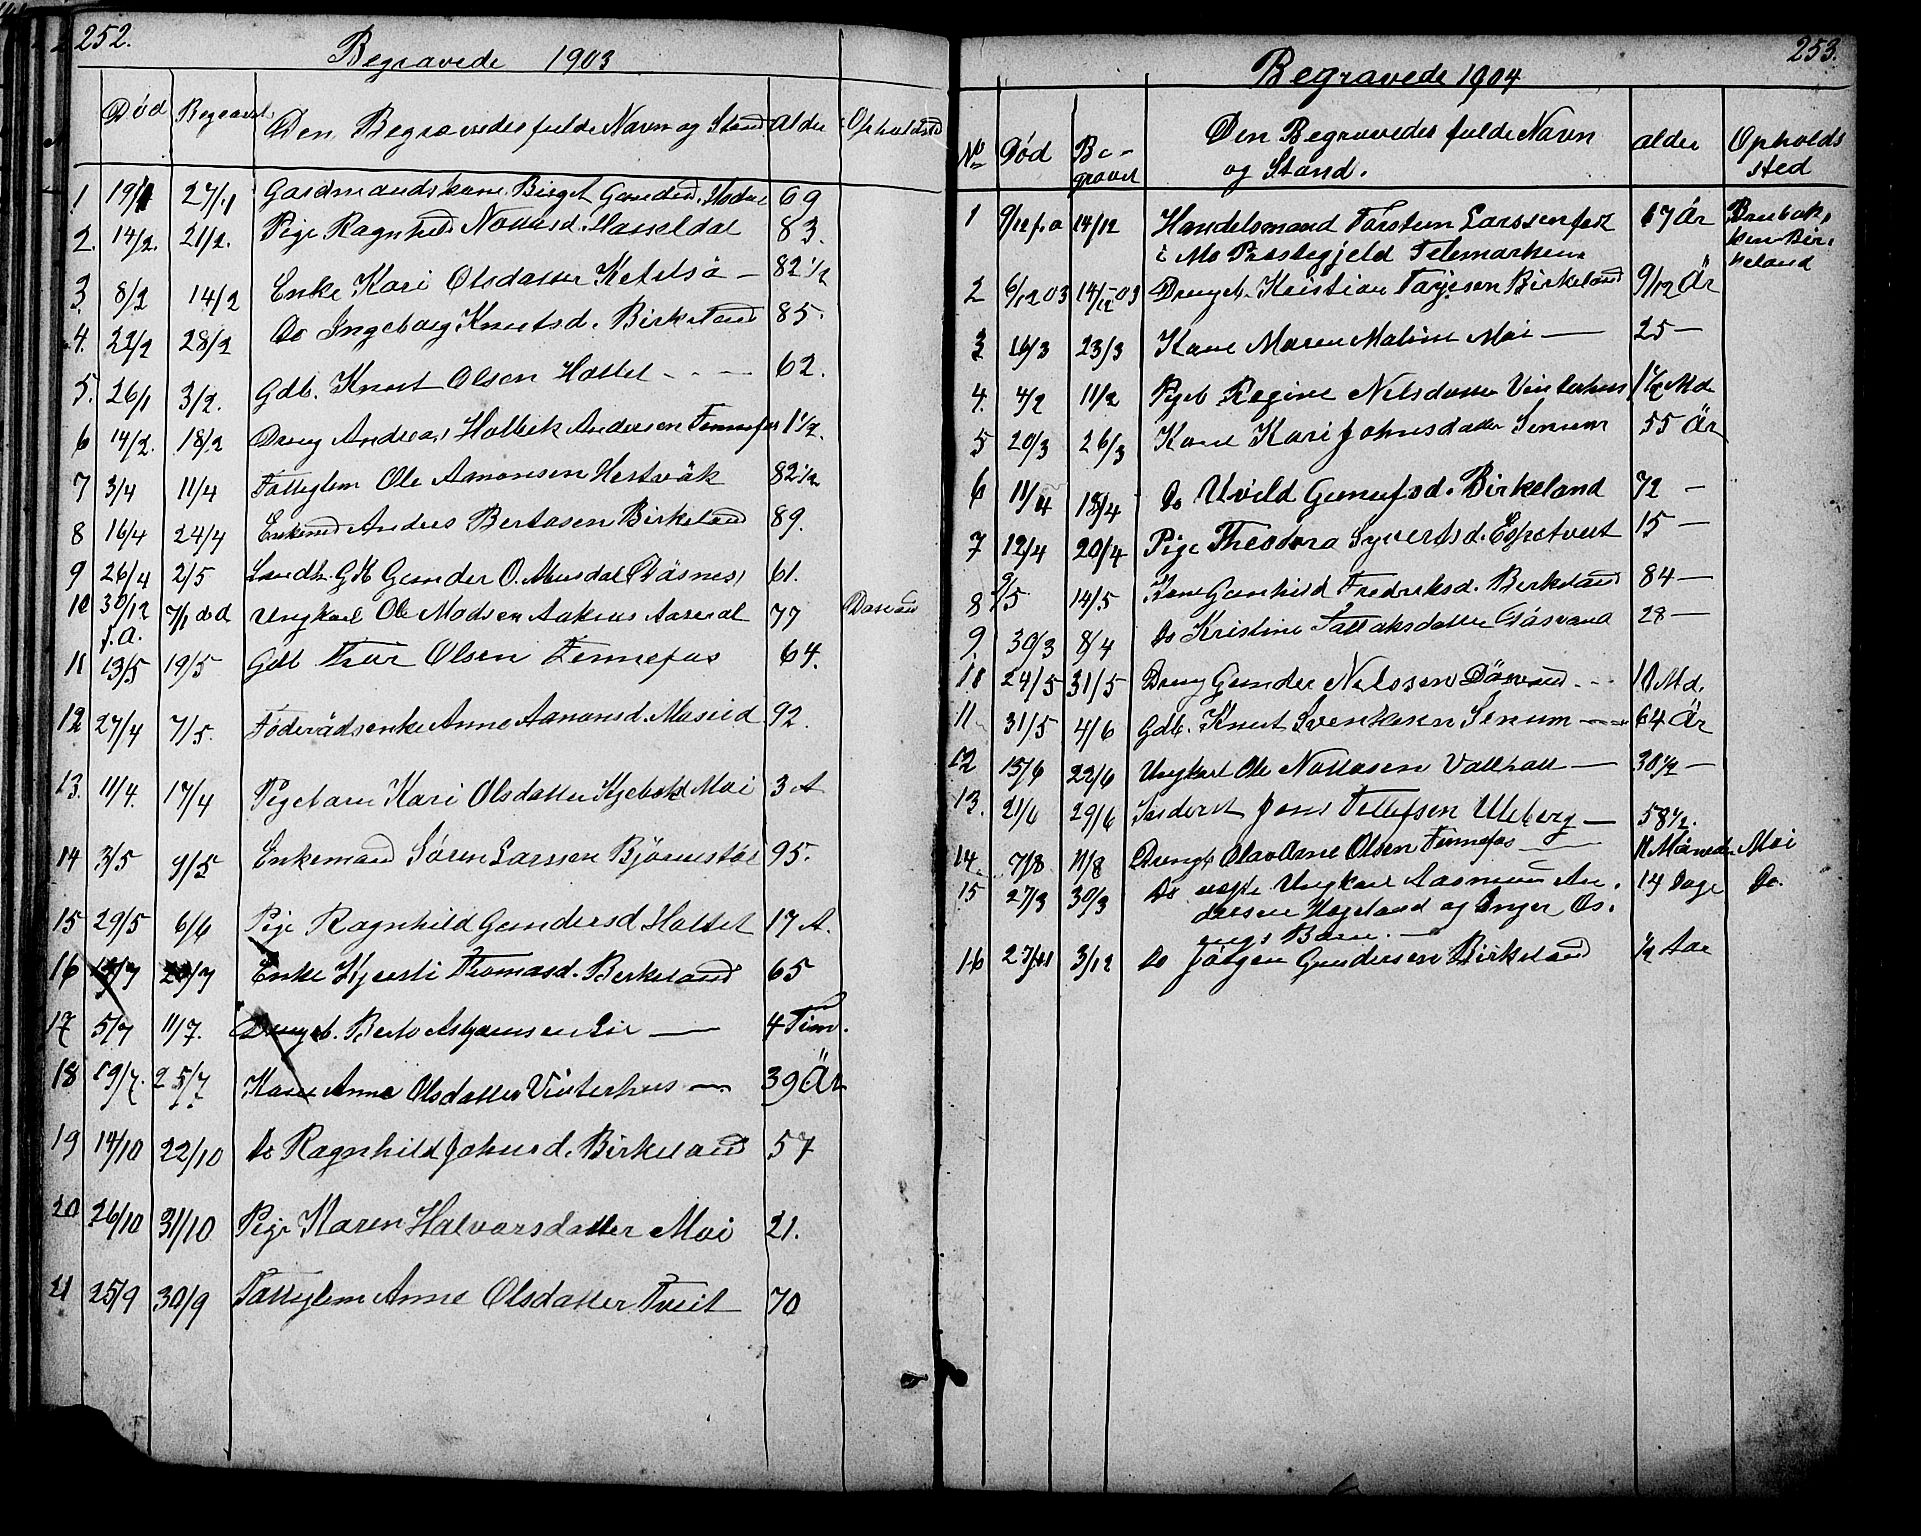 252.
Begravede 1903
Død Begravet Den Begravedes fulde Navn og Stand Alder Opholdsted
1 19/1 27/1 Gaardmandskone Birget Gundersd. 69
2. 14/2. 21/2. Pige Ragnhild Hasseldal 83.
3. 8/2 14/2 Enke Kari Olsdatter Ketelså — 82 1/2
4. 22/2 28/2 Do Ingeborg Knutsd. Birkeland 85.
5. 26/1 3/2. Gdb. Knut Olsen Hattet - - — 62.
6 14/2. 18/2 Dreng Andreas Holbek Andersen Fennefos 1 1/2.
7 3/4 11/4 Fattiglem Ole Aanonsen Hestvåk 82 1/2
8 16/4 24/4 Enkemd Anders Bertosen Birkeland 89.
9 26/4 2/5 Landh. G K Gunder O. 61.
10 30/12 f.a. 7/1 Ungkarl Ole Madsen Aaknes Aaseral 77
11 13/5 19/5 Gdb Thor Olsen Fennefos 64.
12 27/4 7/5. Føderådsenke Anne Aanonsd. 92.
13. 11/4. 17/4 Pigebarn Kari Olsdatter Moi 3 A
14 3/5 9/5 Enkemand Søren Larssen 95.
15 29/5 6/6 Pige Ragnhild Gundersd Hattet 17 A.
16 /7 /7 Enke Kjersti Thomasd. Birkeland 65
17 5/7 11/7. Drengeb. Lie — 4 Tim.
18 19/7. 25/7 Kone Anne Olsdatter Vinterhus — 39 År
19 14/10 22/10 Do Ragnhild Johnsd. Birkeland 57
20 26/10 31/10 Pige Karen Halvorsdatter Moi 21.
21 25/9 30/9 Fattiglem Anne Olsdatter Tveit 70
253.
Begravede 1904
No Død Be-
gravet Den Begravedes fulde Navn
og Stand. alder Opholds
sted
1 9/12 f.a 14/12 Handelsmand Torsten Larssen født 67 År
i Mo Præstegjeld Telemarken
2 6/12 03 14/12 03 Drengeb. Kristian Tarjesen Birkeland 9/12 År
3 16/3 23/3 Kone Maren Maline Moi — 25 —
4. 4/2 11/2 Pigeb Regine Nilsdatter Vinterhus 1 1/2 Md
5 20/3 26/3 Kone Kari Johnsdatter Senum 55 År
6 11/4 18/4 Do Uvild Gunufsd. Birkeland 72 —
7 12/4 20/4 Pige Theodora Syvertsd. Espetveit 15 —
8 9/5 14/5 Kone Gunhild Fredriksd. Birkeland 84 —
9. 30/3 8/4 Do Kristine Tallaksdatter Gåsvand 28 —
10 24/5 31/5 Dreng Gunder Nilssen Dåsvand. - - 10 Md.
11 31/5 4/6 Gdb. Knut Svenkesen Senum — 64 År
12 15/6 22/6 Ungkarl Ole Nottosen Vallhatt — 30 1/2 —
13. 21/6 29/6 Inderst Jens Tellefsen Uleberg — 58 1/2.
14 7/8 11/8 Drengb Olav Arne Olsen Fennefos — 11 Måneder Moi
15 27/3 30/3 Do uægte Ungkarl Aasmund An- 14 Dage Do.
dersen Hageland og Inger Os-
Barn. —
16 27/11 3/12 Do Jörgen Gundersen Birkeland 1/2 Aar